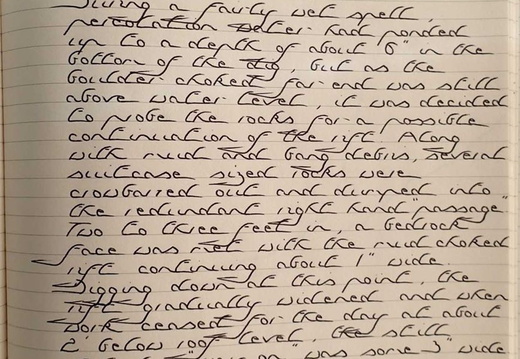 During a fairly wet spell,
percolation water had ponded
up to a depth of about 6" in the
bottom of the dig, but as the
boulder choked far end was still
above water level, it was decided
to probe the rocks for a possible
continuation of the rift. Along
with mud and bang debris, several
suitcase sized rocks were
crowbarred out and dumped into
the redundant right hand "passage"
Two to three feet in, a bedrock
face was met with the mud choked
rift continuing about 1" wide.
Digging down at this point, the
rift gradually widened and when
work ceased for the day at about
2' below roof level, the still
"was some 3" wide